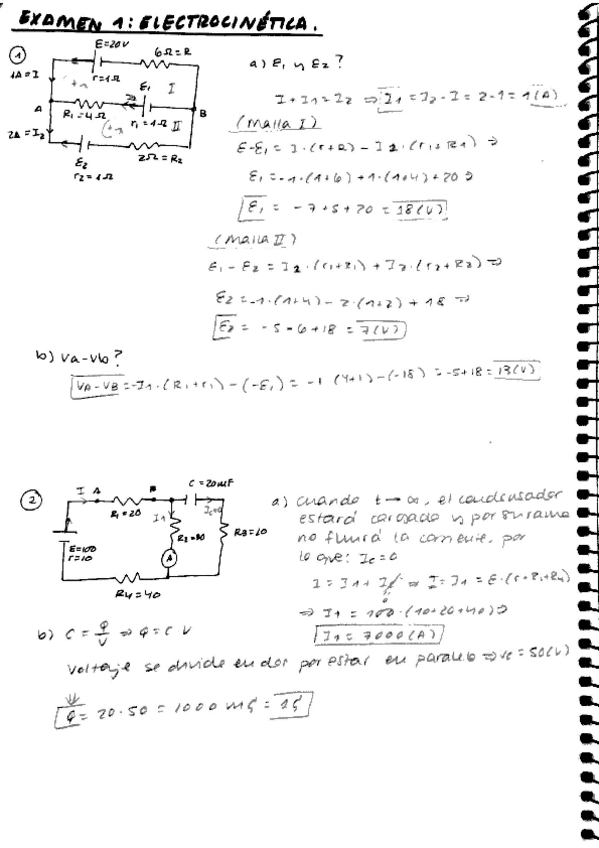 EXAMEN 1: ELECTROCINÉTICA.
①
E=20V
6Ω=R
r=1Ω
1A=I
E1
I
A
B
R1=4Ω
r1=1Ω
II
2A=I2
E2
r2=1Ω
2Ω=R2
a) E1 y E2?
I+I1=I2 ⇒ I1=I2-I=2-1=1(A)
(Malla I)
E-E1= I·(r+R)-I1·(r1+R1) ⇒
E1=-1·(1+6)+1·(1+4)+20 ⇒
E1= -7+5+20=18(V)
(Malla II)
E1-E2=I1·(r1+R1)+I2·(r2+R2) ⇒
E2=-1·(1+4)-2·(1+2)+18 ⇒
E2= -5-6+18=7(V)
b) Va-Vb?
VA-VB=-I1·(R1+r1)-(-E1)= -1 (4+1)-(-18) =-5+18=13(V)
②
I
A
B
C=20mF
R1=20
I1
Ic=0
E=100
r=10
A
R4=40
a) Cuando t→∞, el condensador
estará cargado y por su rama
no fluirá la corriente, por
lo que: Ic=0
I=I1+Ic ⇒ I=I1=E·(r+R1+R4)
0
⇒ I1=100·(10+20+40)⇒
I1=7000(A)
b) C=Q/V ⇒ Q=C V
Voltaje se divide en dos por estar en paralelo ⇒ Vc=50(V)
Q= 20·50=1000 mC=1C